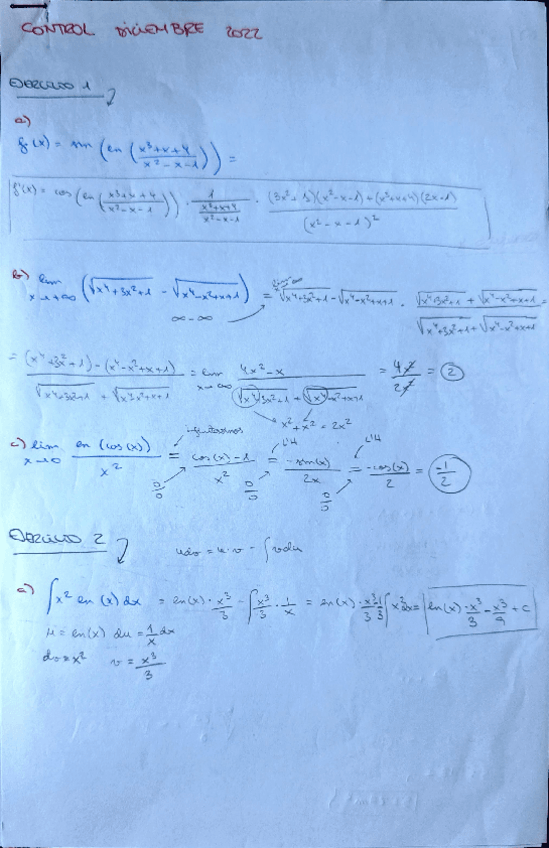 CONTROL DICIEMBRE 2022
EJERCICIO 1
a)
f(x) = sin (ln (x³+x+4 / x²-x-1)) =
f'(x) = cos (ln (x³+x+4 / x²-x-1)) · 1 / (x³+x+4 / x²-x-1) · (3x²+1)(x²-x-1)+(x³+x+4)(2x-1) / (x²-x-1)²
b) lim x→+∞ (√x⁴+3x²+1 - √x⁴-x²+x+1) = √x⁴+3x²+1 - √x⁴-x²+x+1 · √x⁴+3x²+1 + √x⁴-x²+x+1 / √x⁴+3x²+1 + √x⁴-x²+x+1 =
∞-∞
= (x⁴+3x²+1)-(x⁴-x²+x+1) / √x⁴+3x²+1 + √x⁴-x²+x+1 = lim x→∞ 4x²-x / √x⁴+3x²+1 + √x⁴-x²+x+1 = 4x² / 2x² = 2
x²+x² = 2x²
infinitésimos L'H L'H
c) lim x→0 ln (cos(x)) / x² = cos(x)-1 / x² = -sin(x) / 2x = -cos(x) / 2 = -1/2
0/0 0/0 0/0
EJERCICIO 2
udv = u·v - ∫vdu
a) ∫x² ln(x) dx = ln(x)·x³/3 - ∫x³/3 · 1/x = ln(x)·x³/3 - 1/3 ∫x²dx = ln(x)·x³/3 - x³/9 + c
u = ln(x) du = 1/x dx
dv = x² v = x³/3